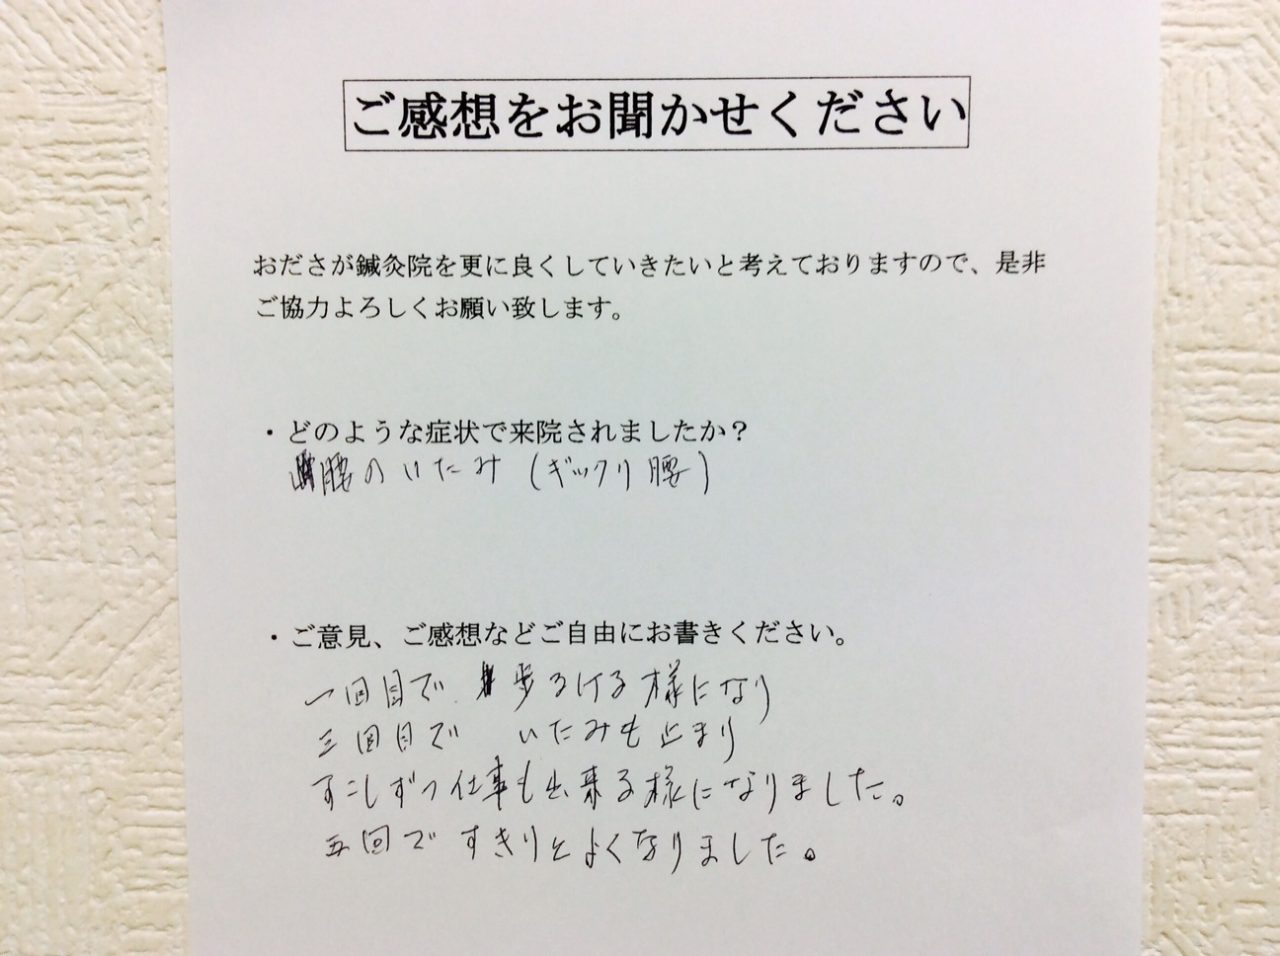 ご感想をお聞かせください
おださが鍼灸院を更に良くしていきたいと考えておりますので、是非
ご協力よろしくお願い致します。
・どのような症状で来院されましたか？
腰のいたみ（ギックリ腰）
・ご意見、ご感想などご自由にお書きください。
一回目で 歩るける様になり
三回目で いたみも止まり
すこしずつ仕事も出来る様になりました。
五回ですきりとよくなりました。